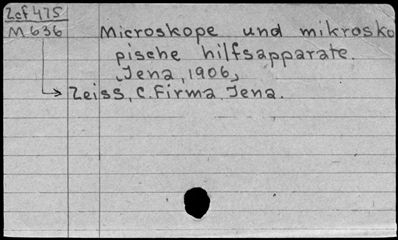 Zcf 475
M636
Microskope und mikrosko
pische hilfsapparate.
[Jena, 1906]
Zeiss, C. Firma. Jena.